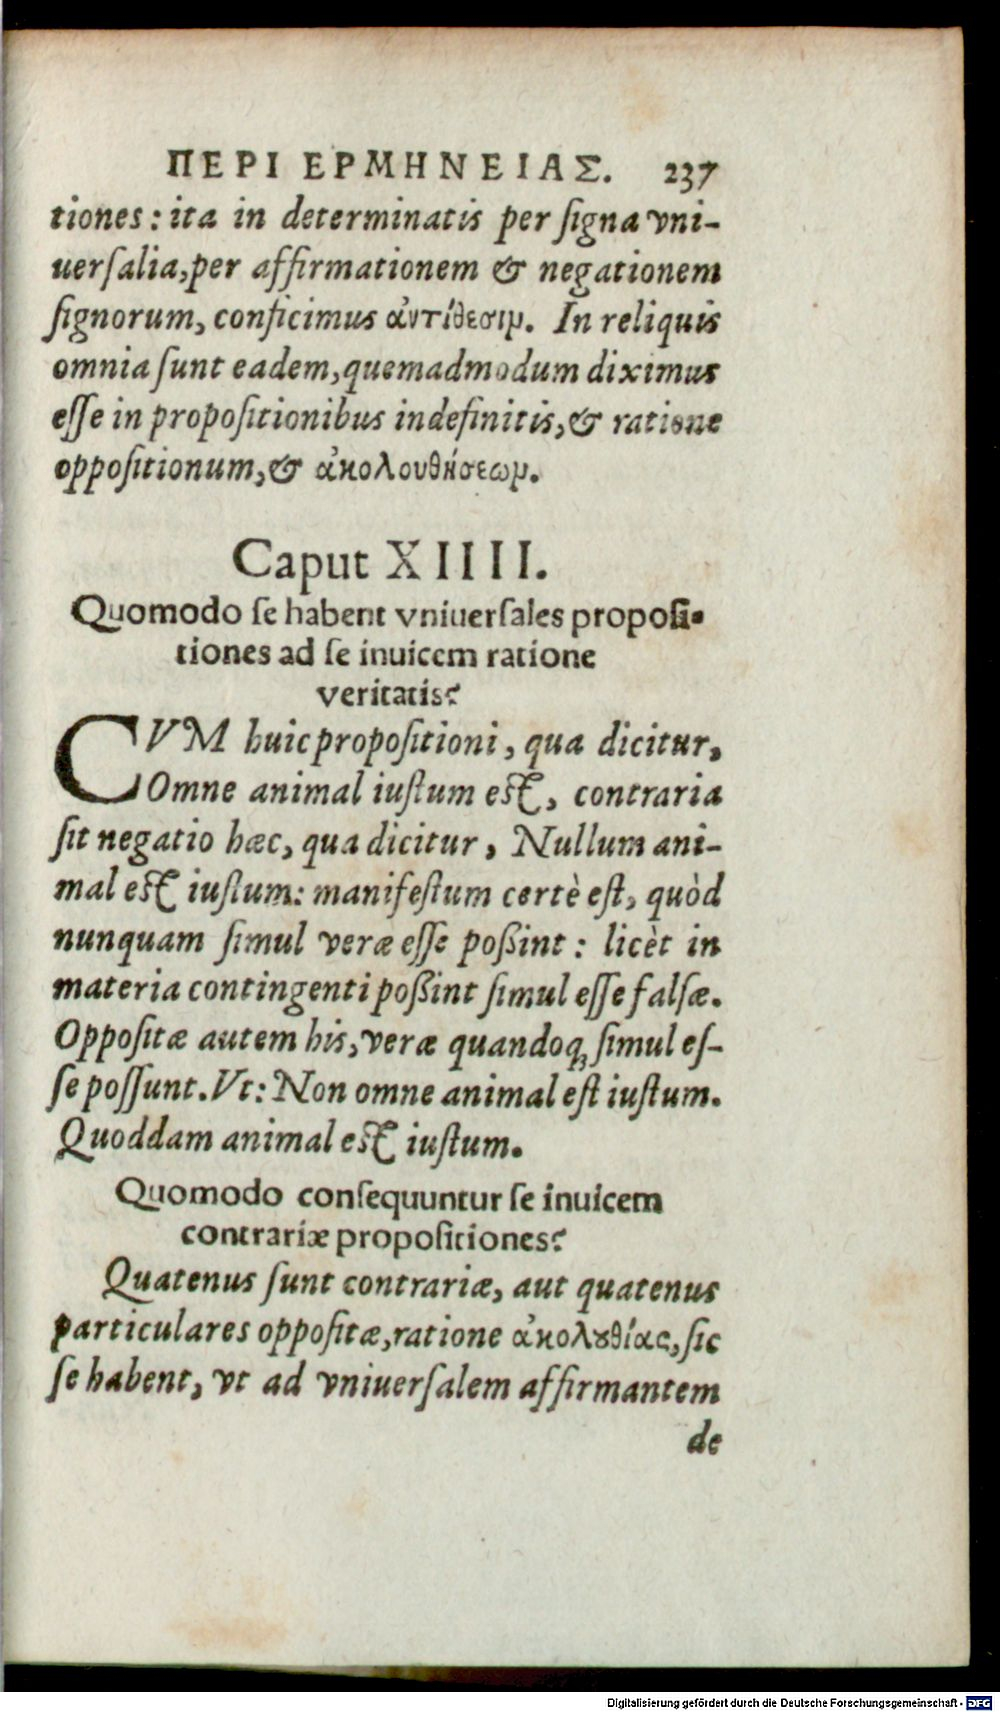 ΠΕΡΙ ΕΡΜΗΝΕΙΑΣ. 237
tiones: ita in determinatis per ſigna vni-
uerſalia, per affirmationem & negationem
ſignorum, conficimus ἀντίθεσιμ. In reliquis
omnia ſunt eadem, quemadmodum diximus
eſſe in propoſitionibus indefinitis, & ratione
oppoſitionum, & ἀκολουθήσεωμ.
Caput XIIII.
Quomodo ſe habent vniuerſales propoſi-
tiones ad ſe inuicem ratione
veritatis?
CVM huic propoſitioni, qua dicitur,
Omne animal iuſtum eſt, contraria
ſit negatio hæc, qua dicitur, Nullum ani-
mal eſt iuſtum: manifeſtum certè eſt, quòd
nunquam ſimul veræ eſſe poßint: licèt in
materia contingenti poßint ſimul eſſe falſæ.
Oppoſitæ autem his, veræ quandoq; ſimul eſ-
ſe poſſunt. Vt: Non omne animal eſt iuſtum.
Quoddam animal eſt iuſtum.
Quomodo conſequuntur ſe inuicem
contrariæ propoſitiones?
Quatenus ſunt contrariæ, aut quatenus
particulares oppoſitæ, ratione ἀκολȣθίας, ſic
ſe habent, vt ad vniuerſalem affirmantem
de
Digitalisierung gefördert durch die Deutsche Forschungsgemeinschaft - DFG